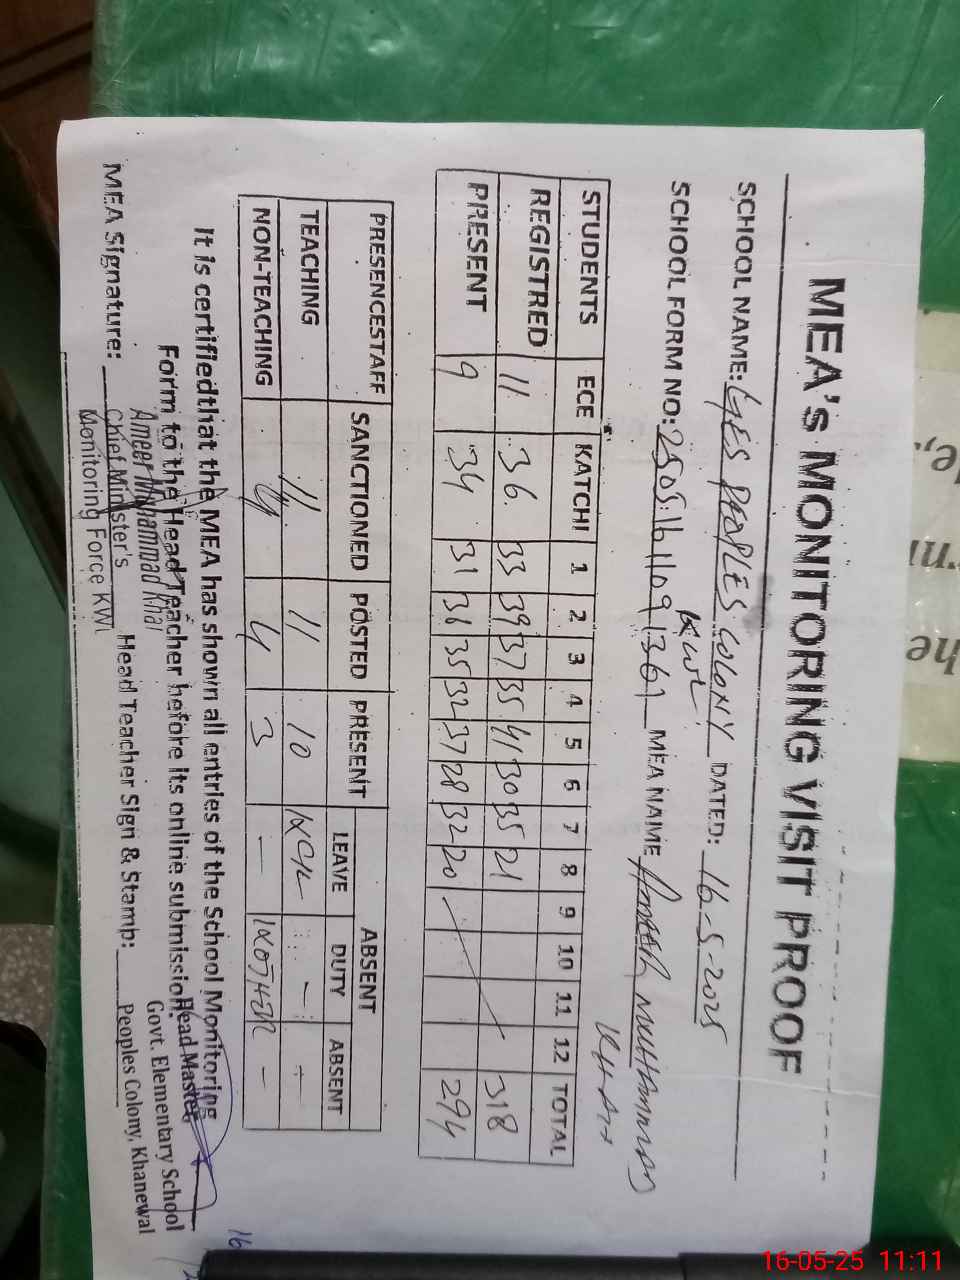 MEA's MONITORING VISIT PROOF
SCHOOL NAME: GES PEOPLES COLONY DATED: 16-5-2025
KWL
SCHOOL FORM NO: 25051611091361 MEA NAME AMEER MUHAMMAD
KHAN
STUDENTS ECE KATCHI 1 2 3 4 5 6 7 8 9 10 11 12 TOTAL
REGISTRED 11 36 33 39 37 35 41 30 35 21 318
PRESENT 9 34 31 36 35 32 37 28 32 20 294
PRESENCESTAFF SANCTIONED POSTED PRESENT ABSENT
LEAVE DUTY ABSENT
TEACHING 11 11 10 1XCL - -
NON-TEACHING 4 4 3 - 1XOTHER -
It is certifiedthat the MEA has shown all entries of the School Monitoring
Form to the Head Teacher before its online submission.
MEA Signature: Head Teacher Sign & Stamp:
Ameer Muhammad Khan
Chief Minister's
Monitoring Force KWL
Head Master
Govt. Elementary School
Peoples Colony, Khanewal
16
he
16-05-25 11:11